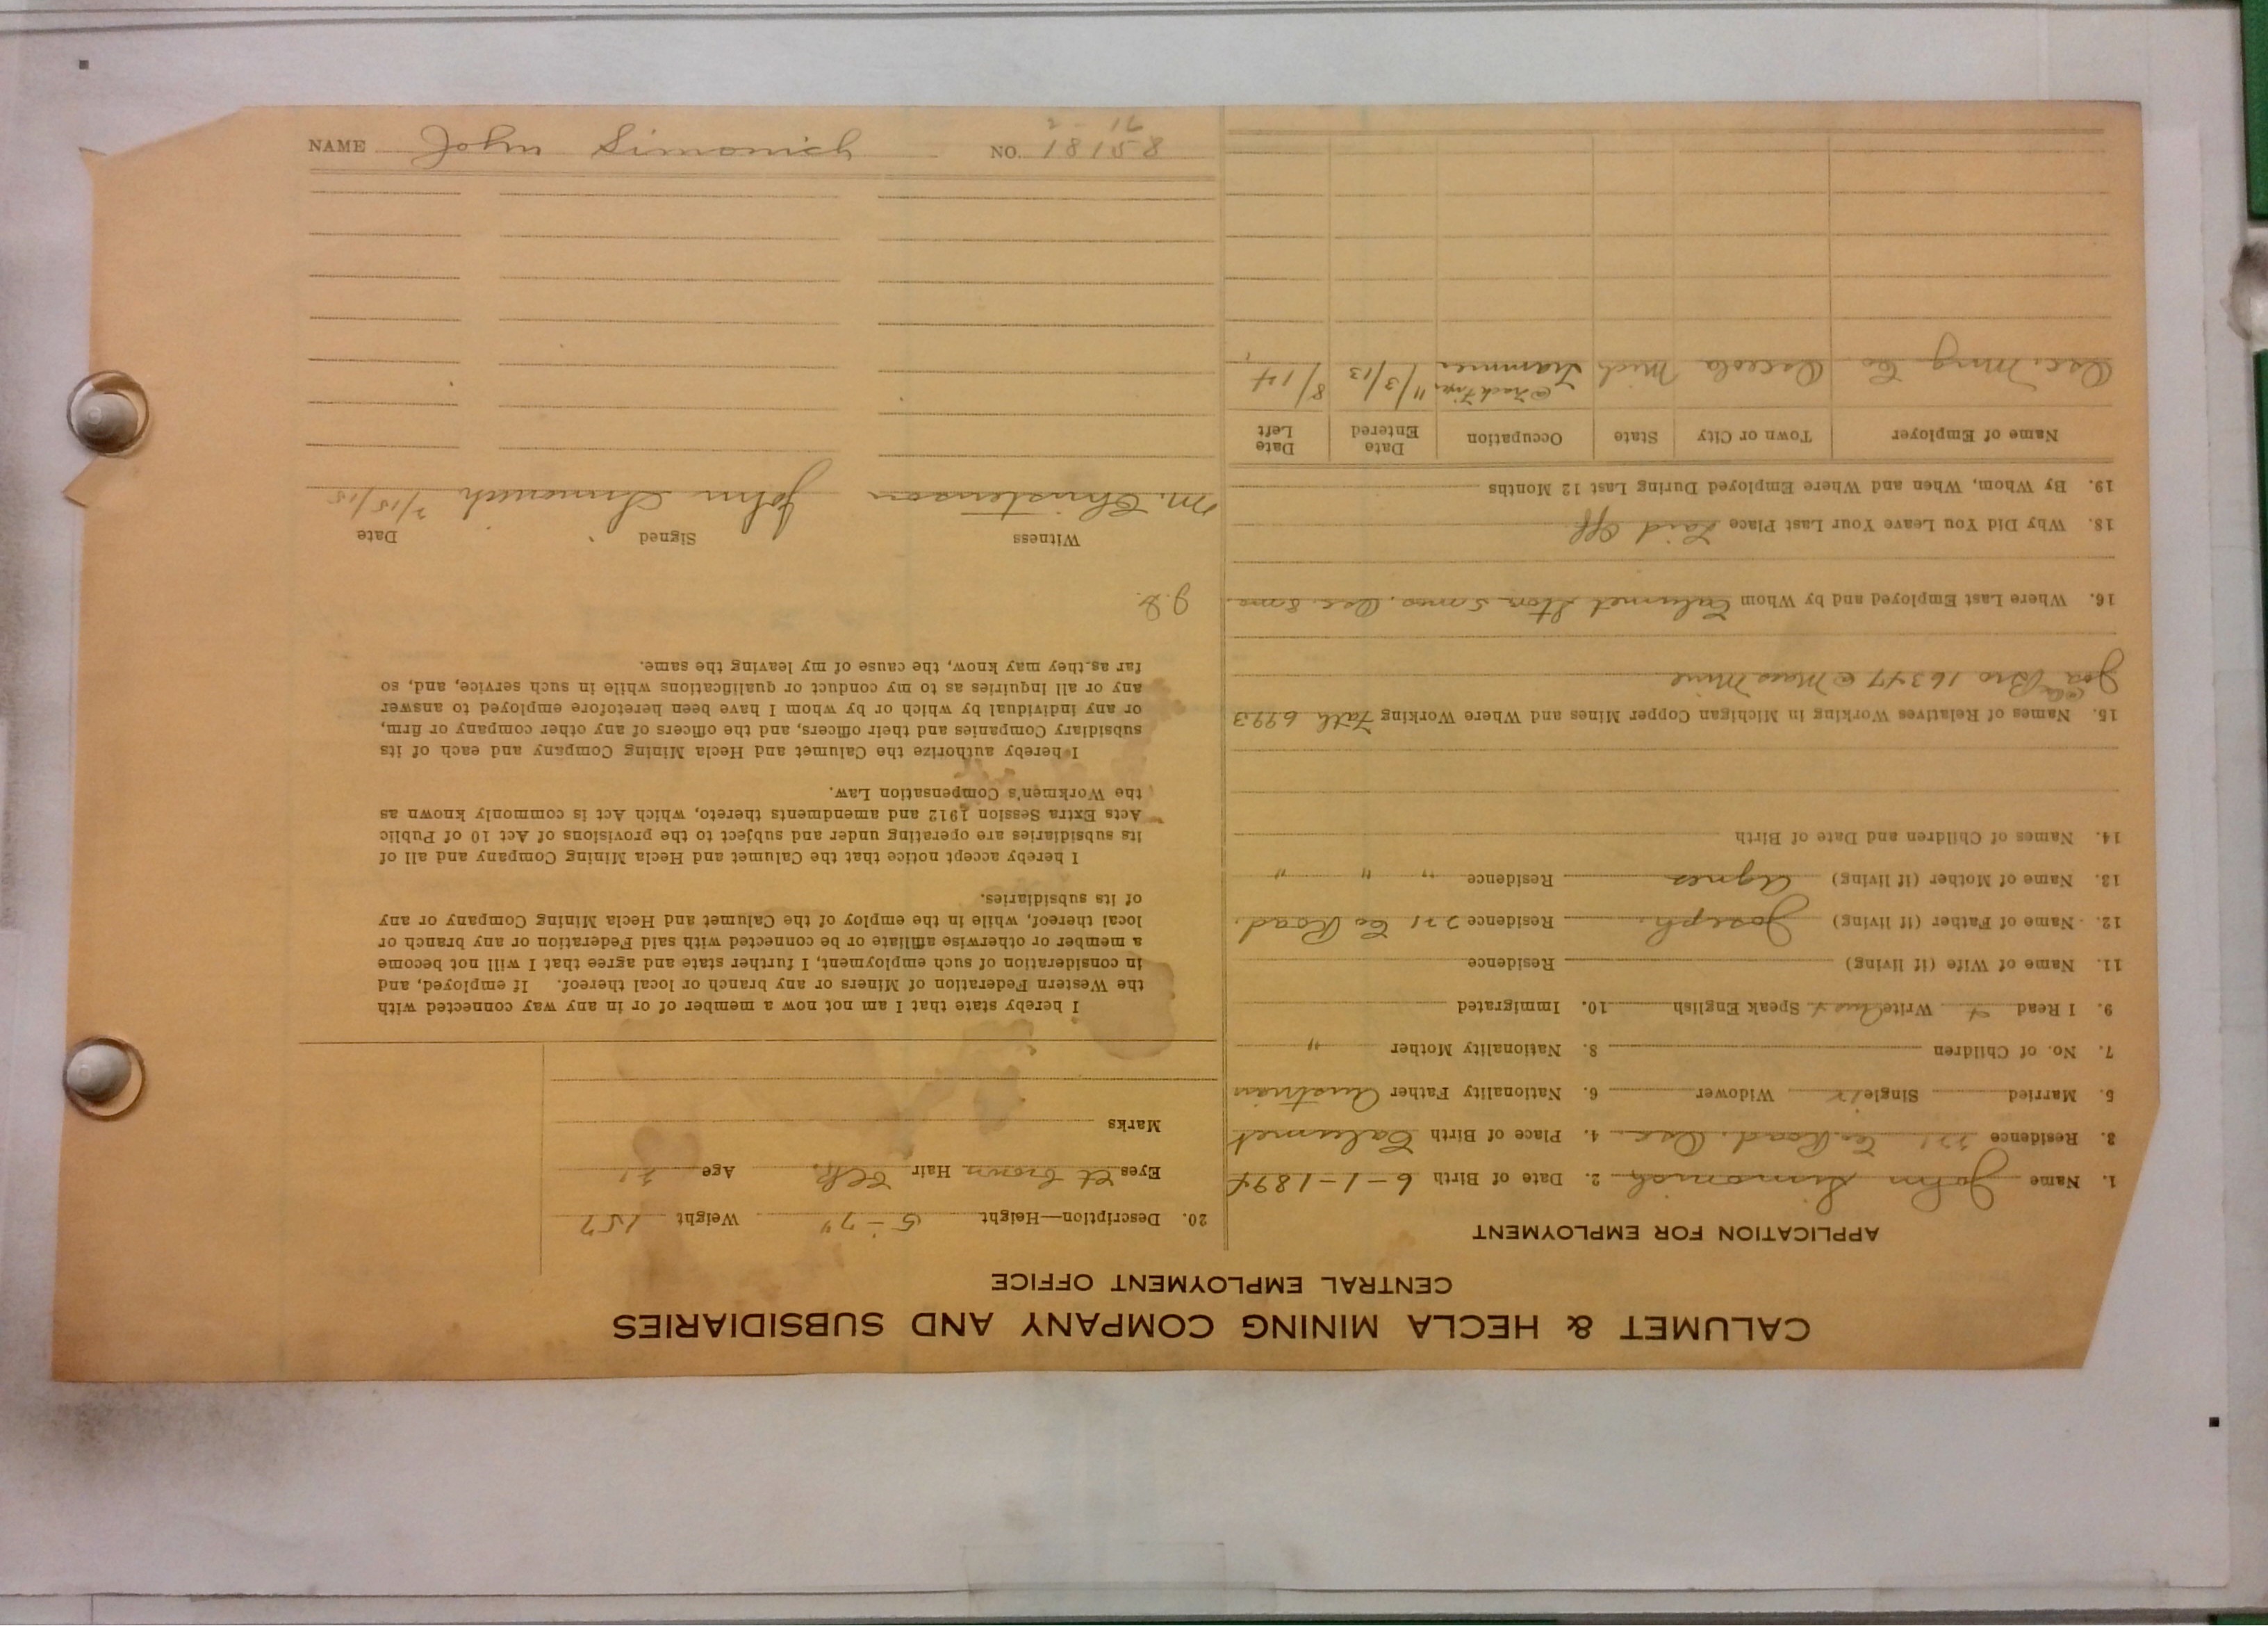 CALUMET & HECLA MINING COMPANY AND SUBSIDIARIES
CENTRAL EMPLOYMENT OFFICE
APPLICATION FOR EMPLOYMENT
1. Name John Simonich 2. Date of Birth 6-1-1894
3. Residence 221 Co Road. Osc. 4. Place of Birth Calumet
5. Married Single x Widower 6. Nationality Father Austrian
7. No. of Children 8. Nationality Mother "
9. I Read Write Speak English 10. Immigrated
11. Name of Wife (if living) Residence
12. Name of Father (if living) Joseph. Residence 221 Co Road.
13. Name of Mother (if living) Agnes Residence " " "
14. Names of Children and Date of Birth
15. Names of Relatives Working in Michigan Copper Mines and Where Working Fath 6223
Bro 16347 @ Mass Mine
16. Where Last Employed and by Whom Calumet Osc.
18. Why Did You Leave Your Last Place Laid Off
19. By Whom, When and Where Employed During Last 12 Months
Name of Employer Town or City State Occupation Date Entered Date Left
Osc. Mng Co. Osceola Mich Trammer 11/3/13 8/14
20. Description—Height 5-7" Weight 157
Eyes Lt brown Hair Blk. Age 21
Marks
I hereby state that I am not now a member of or in any way connected with
the Western Federation of Miners or any branch or local thereof. If employed, and
in consideration of such employment, I further state and agree that I will not become
a member or otherwise affiliate or be connected with said Federation or any branch or
local thereof, while in the employ of the Calumet and Hecla Mining Company or any
of its subsidiaries.
I hereby accept notice that the Calumet and Hecla Mining Company and all of
its subsidiaries are operating under and subject to the provisions of Act 10 of Public
Acts Extra Session 1912 and amendments thereto, which Act is commonly known as
the Workmen's Compensation Law.
I hereby authorize the Calumet and Hecla Mining Company and each of its
subsidiary Companies and their officers, and the officers of any other company or firm,
or any individual by which or by whom I have been heretofore employed to answer
any or all inquiries as to my conduct or qualifications while in such service, and, so
far as they may know, the cause of my leaving the same.
Witness Signed Date
M. Christenson John Simonich 2/15/15
2-16
NAME John Simonich NO. 18158